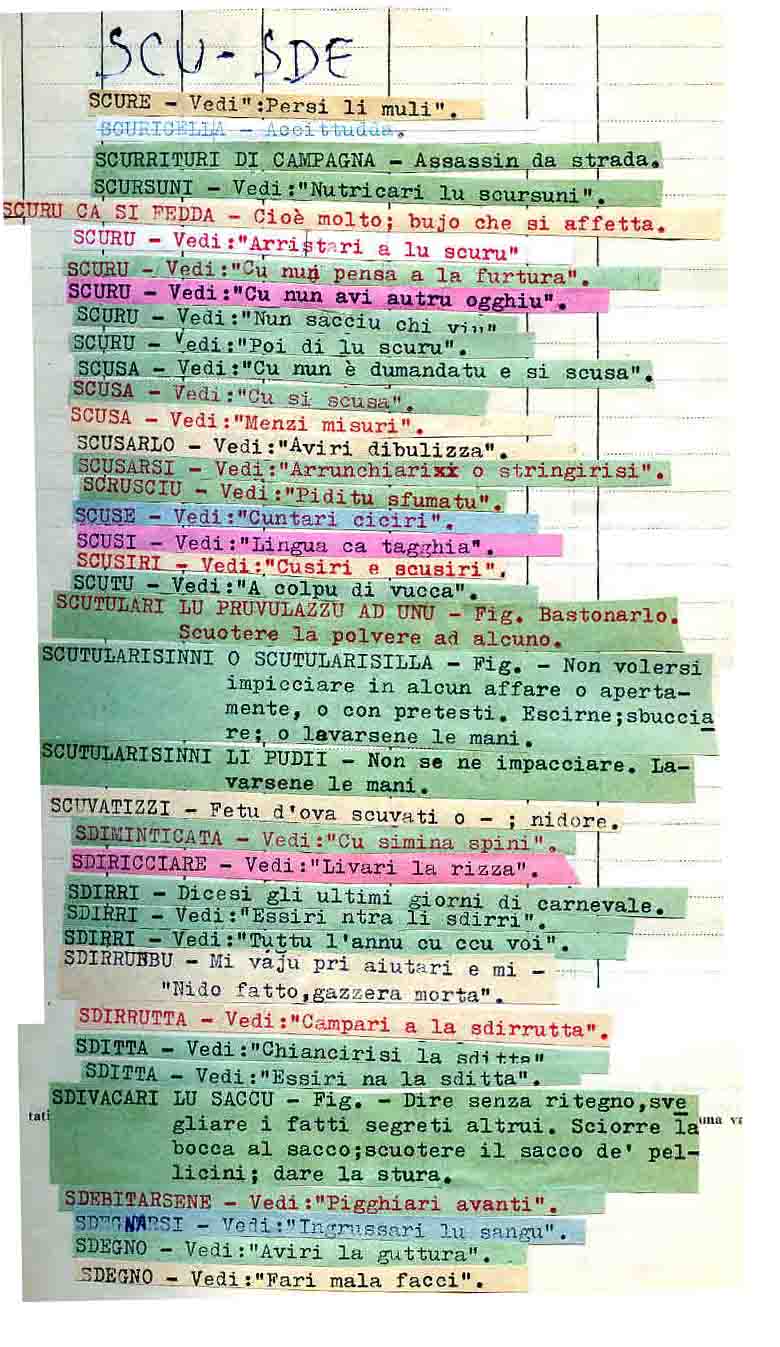 SCU-SDE
SCURE - Vedi":Persi li muli".
SCURICELLA - Accittudda.
SCURRITURI DI CAMPAGNA - Assassin da strada.
SCURSUNI - Vedi:"Nutricari lu scursuni".
SCURU CA SI FEDDA - Cioè molto; bujo che si affetta.
SCURU - Vedi:"Arristari a lu scuru"
SCURU - Vedi:"Cu nun pensa a la furtura".
SCURU - Vedi:"Cu nun avi autru ogghiu".
SCURU - Vedi:"Nun sacciu chi viu"
SCURU - Vedi:"Poi di lu scuru".
SCUSA - Vedi:"Cu nun è dumandatu e si scusa".
SCUSA - Vedi:"Cu si scusa".
SCUSA - Vedi:"Menzi misuri".
SCUSARLO - Vedi:"Aviri dibulizza".
SCUSARSI - Vedi:"Arrunchiarixi o stringirisi".
SCRUSCIU - Vedi:"Piditu sfumatu".
SCUSE - Vedi:"Cuntari ciciri".
SCUSI - Vedi:"Lingua ca tagghia".
SCUSIRI - Vedi:"Cusiri e scusiri".
SCUTU - Vedi:"A colpu di vucca".
SCUTULARI LU PRUVULAZZU AD UNU - Fig. Bastonarlo.
Scuotere la polvere ad alcuno.
SCUTULARISINNI O SCUTULARISILLA - Fig. - Non volersi
impicciare in alcun affare o aperta-
mente, o con pretesti. Escirne;sbuccia
re; o lavarsene le mani.
SCUTULARISINNI LI PUDII - Non se ne impacciare. La-
varsene le mani.
SCUVATIZZI - Fetu d'ova scuvati o - ; nidore.
SDIMINTICATA - Vedi:"Cu simina spini".
SDIRICCIARE - Vedi:"Livari la rizza".
SDIRRI - Dicesi gli ultimi giorni di carnevale.
SDIRRI - Vedi:"Essiri ntra li sdirri".
SDIRRI - Vedi:"Tuttu l'annu cu ccu voi".
SDIRRUNBU - Mi vaju pri aiutari e mi -
"Nido fatto,gazzera morta".
SDIRRUTTA - Vedi:"Campari a la sdirrutta".
SDITTA - Vedi:"Chiancirisi la sditta"
SDITTA - Vedi:"Essiri na la sditta".
SDIVACARI LU SACCU - Fig. - Dire senza ritegno,sve
tati
gliare i fatti segreti altrui. Sciorre la
una
bocca al sacco;scuotere il sacco de' pel-
licini; dare la stura.
SDEBITARSENE - Vedi:"Pigghiari avanti".
SDEGNARSI - Vedi:"Ingrussari lu sangu".
SDEGNO - Vedi:"Aviri la guttura".
SDEGNO - Vedi:"Fari mala facci".